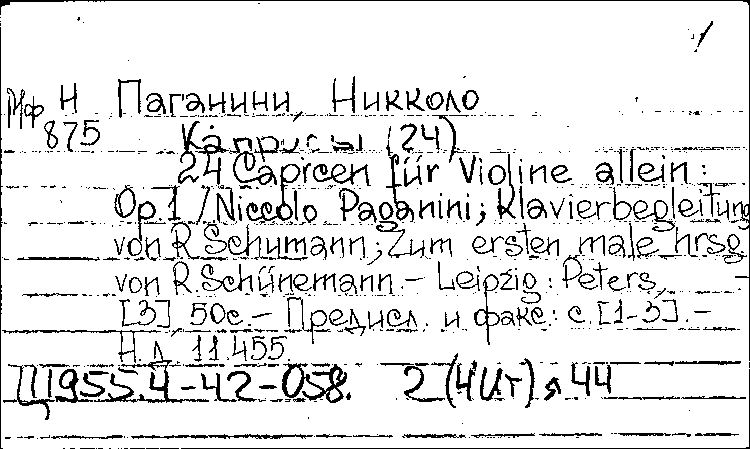 1
Мф Н Паганини, Никколо
875 Каприсы (24)
24 Capricen für Violine allein:
Op.1 / Niccolo Paganini; Klavierbegleitung
von R. Schumann; Zum ersten male hrsg.
von R. Schünemann. – Leipzig: Peters, –
[3], 50с. – Предисл. и факс: с. [1-3]. –
Н.д. 11455.
Ц955.4-42-058. 2(4Ит)я44